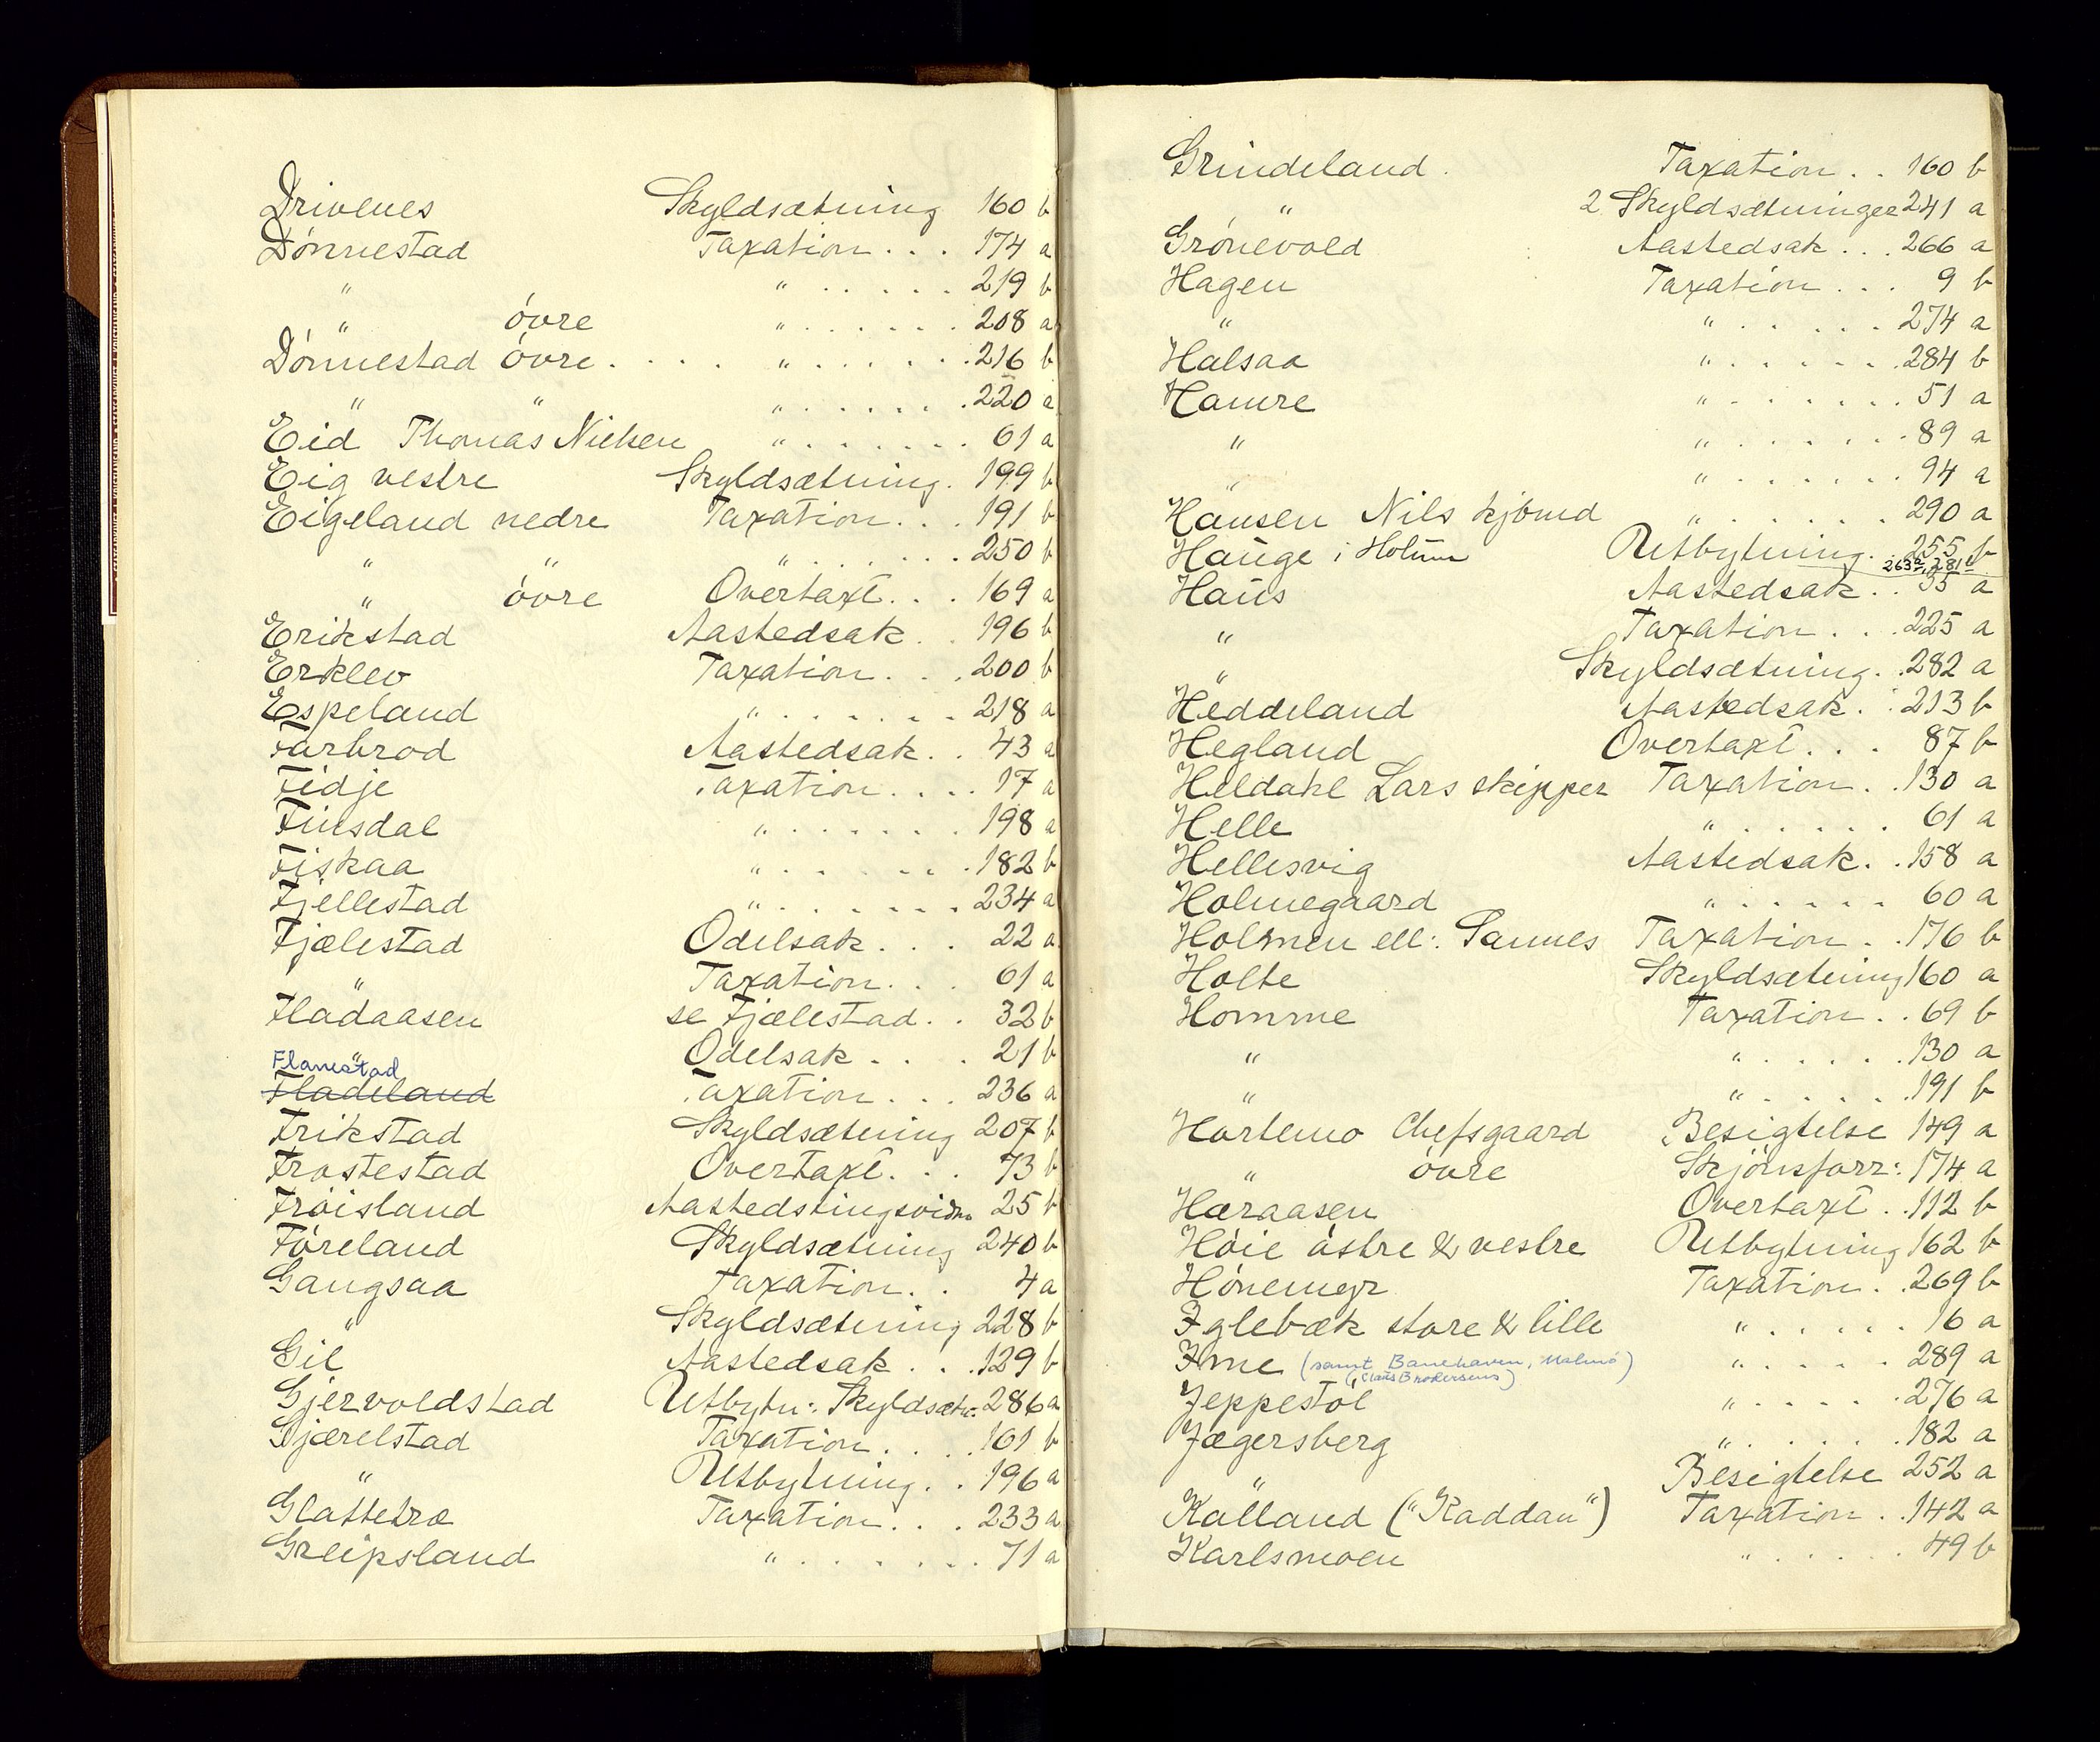 Drivenes Skyldsætning 160 b
Dónnestad Taxation . . . 174 a
" " . . . . . 219 b
" óvre " . . . . . . 208 a
Dónnestad óvre . . . . " . . . . . . 216 b
" " " . . . . . . 220 a
Eid Thomas Nielsen " . . . . . . 61 a
Eig vestre Skyldsætning . 199 b
Eigeland nedre Taxation . . . 191 b
" " " . . . . . . 250 b
" óvre Overtaxt . . . 169 a
Erikstad Aastedsak . . 196 b
Erklev Taxation . . . 200 b
Espeland " . . . . . . 218 a
Farbrod Aastedsak . . 43 a
Fidje Taxation . . . . 17 a
Finsdal " . . . . . . . 198 a
Fiskaa " . . . . . . . 182 b
Fjellestad " . . . . . . . 234 a
Fjælestad Odelsak . . . 22 a
" Taxation . . . 61 a
Fladaasen se Fjælestad . . 32 b
" Odelsak . . . 21 b
Flanestad
Fladeland Taxation . . . 236 a
Frikstad Skyldsætning 207 b
Frostestad Overtaxt . . . 73 b
Fróisland Aastedstingsvidn. 25 b
Fóreland Skyldsætning 240 b
Gangsaa Taxation . . 4 a
" Skyldsætning 228 b
Gil Aastedsak . . . 129 b
Gjervoldstad Utbytn: Skyldsætn: 286 a
Gjærelstad Taxation . . . . 161 b
" Utbytning . . 196 a
Glattetræ Taxation . . . 233 a
Greipsland " . . . . . . . 71 a
Grindeland . Taxation . . 160 b
" 2 Skyldsætninger 241 a
Grónevold Aastedsak . . . 266 a
Hagen Taxation . . . 9 b
" " . . . . . 274 a
Halsaa " . . . . . . 284 b
Hamre " . . . . . . . 51 a
" " . . . . . . . 89 a
" " . . . . . . . 94 a
Hansen Nils kjbmd " . . . . . . 290 a
Hauge i Holum Utbytning . 255 b
263a, 281b
Haus Aastedsak . . 35 a
" Taxation . . . 225 a
" Skyldsætning . . 282 a
Heddeland Aastedsak . . 213 b
Hegland Overtaxt . . . 87 b
Heldahl Lars skipper Taxation . . 130 a
Helle " . . . . . . 61 a
Hellesvig Aastedsak . . 158 a
Holmegaard " . . . . . 60 a
Holmen ell: Sannes Taxation . . 176 b
Holte Skyldsætning 160 a
Homme Taxation . . 69 b
" " . . . . . 130 a
" " . . . . . 191 b
Hortemo Chefsgaard Besigtelse 149 a
" óvre Skjónsforr: 174 a
Hæraasen Overtaxt . . 112 b
Hóie óstre & vestre Utbytning 162 b
Hónemyr Taxation . . 269 b
Iglebæk store & lille " . . . . . . 16 a
Ime (samt Banehaven, Malmö) " . . . . . 289 a
(Claus Brodersens)
Jeppestól " . . . . . 276 a
Jægersberg " . . . . . . 182 a
" Besigtelse 252 a
Kalland ("Kaddan") Taxation . . 142 a
Karlsmoen " . . . . . 49 b